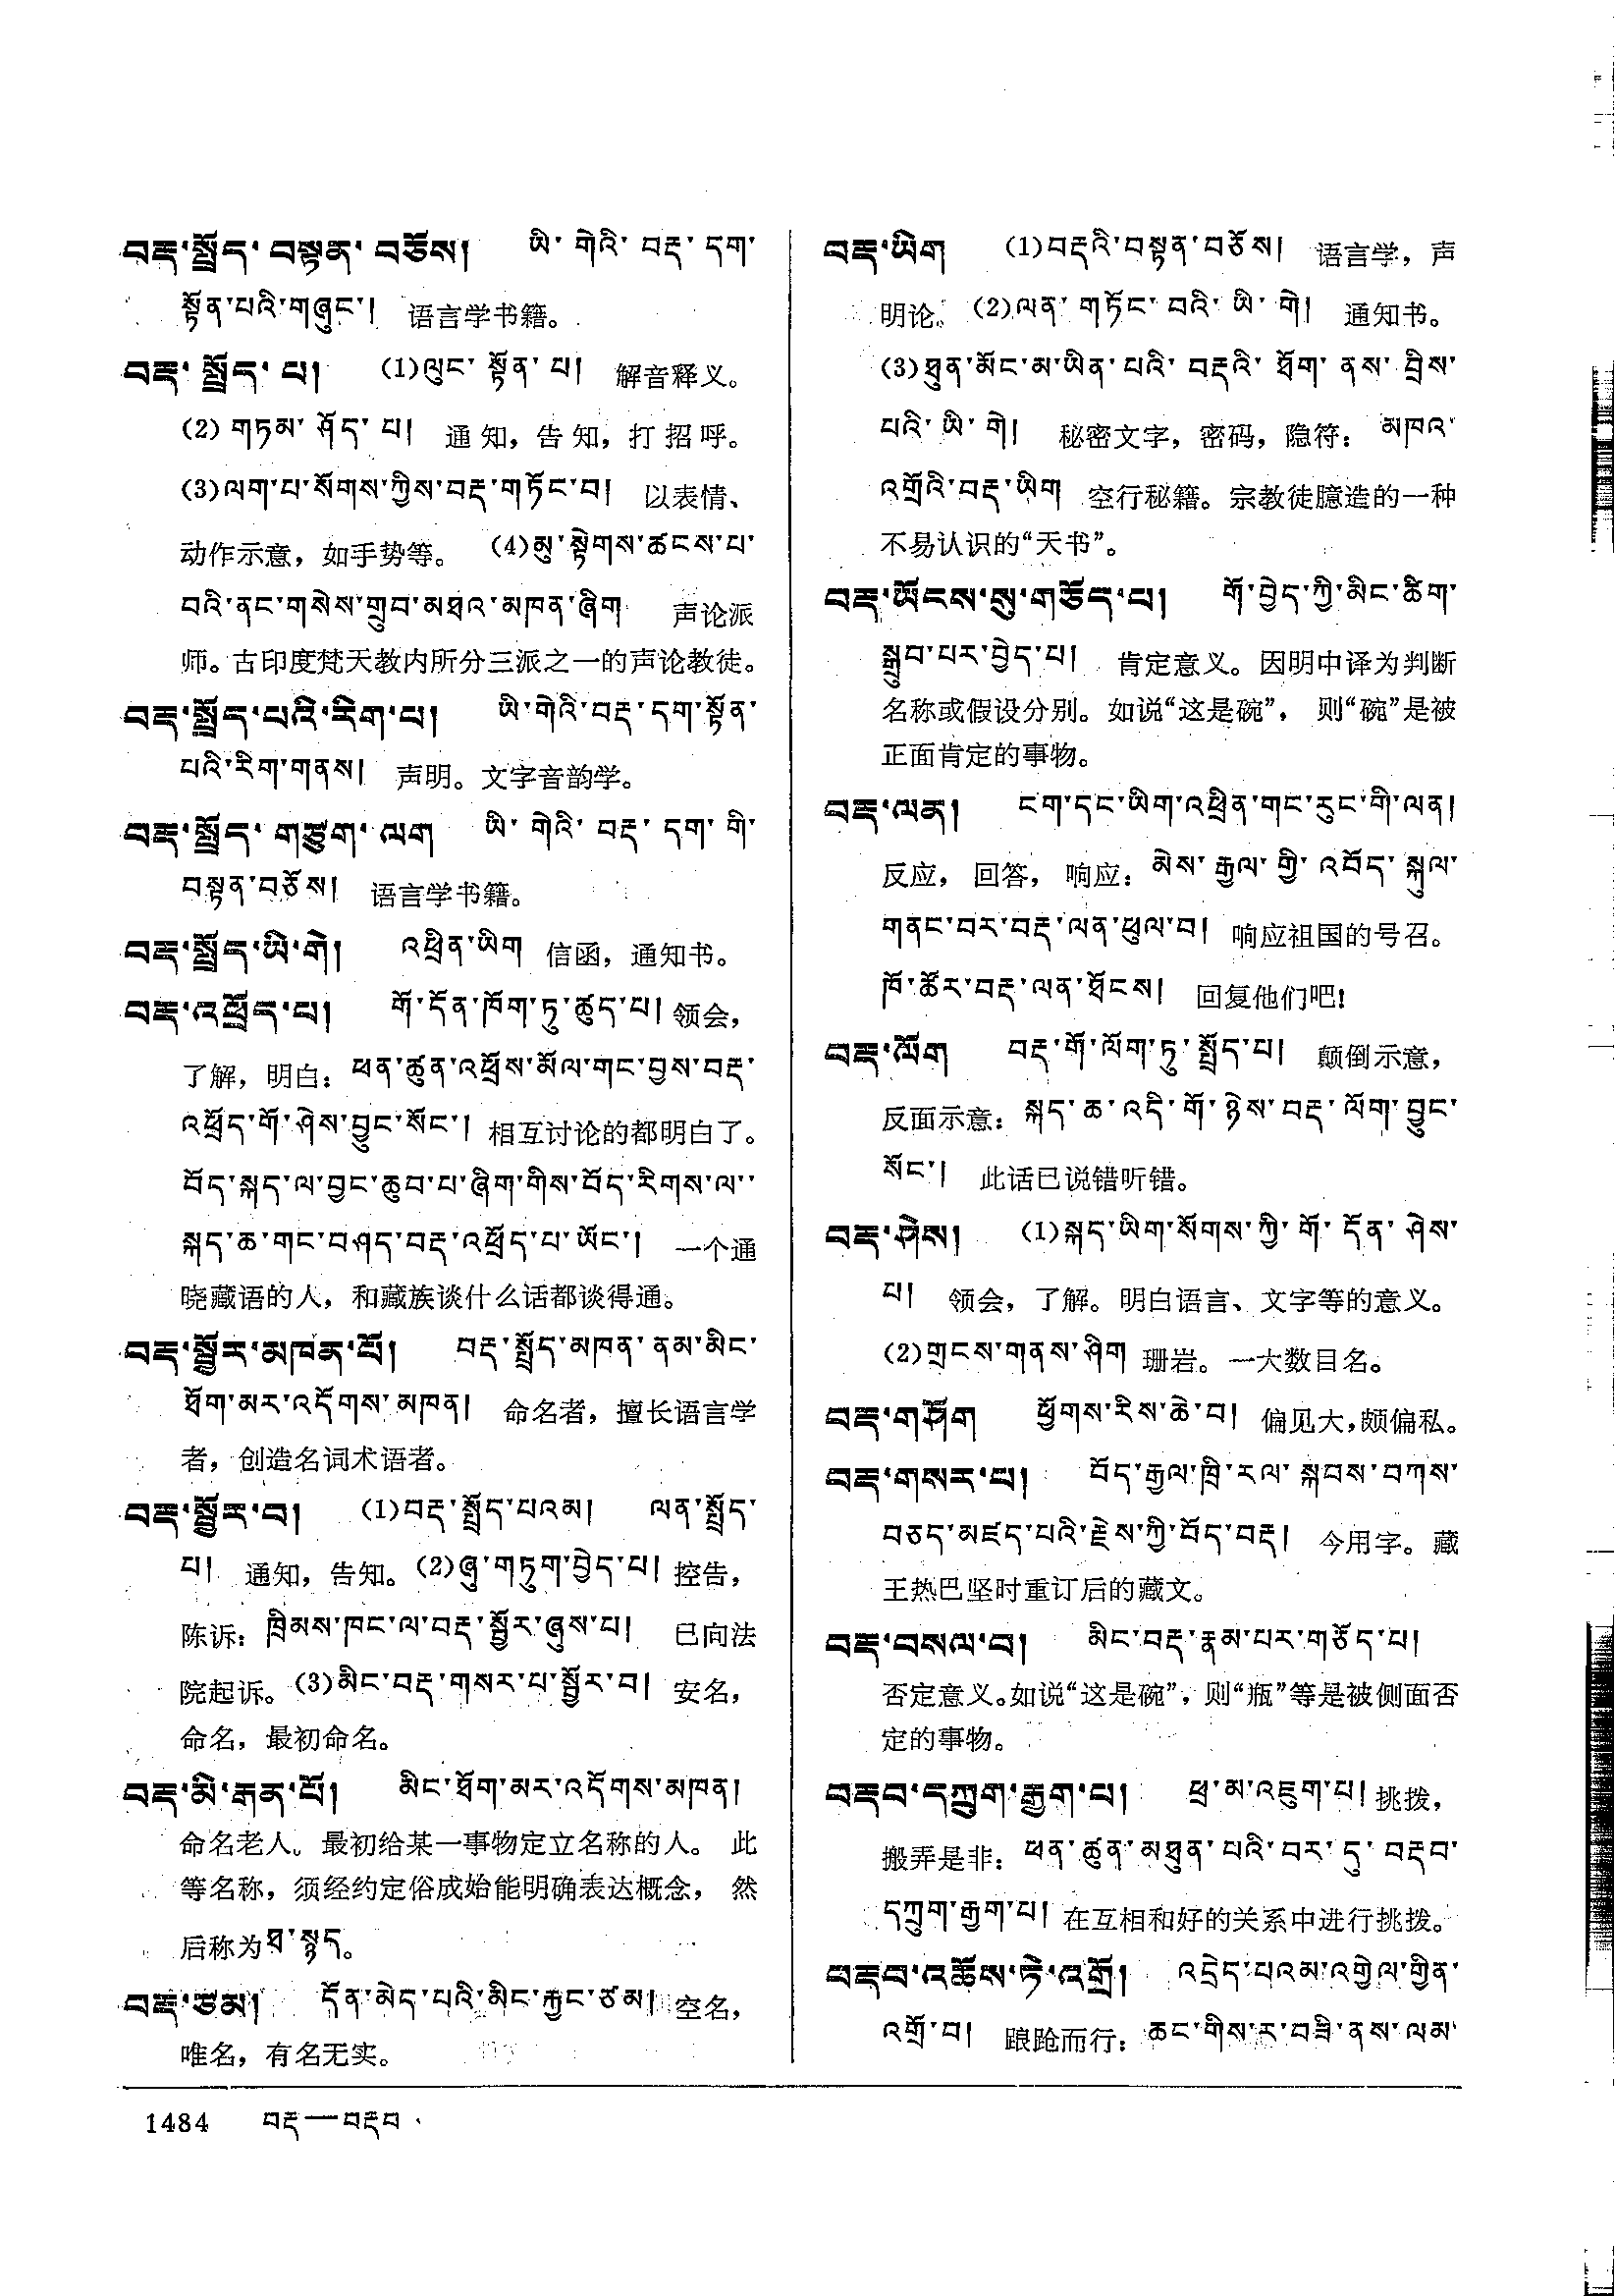 བརྡ་སྤྲོད་བསྟན་བཅོས། ཡི་གེའི་བརྡ་དག་
སྟོན་པའི་གཞུང་། 语言学书籍。
བརྡ་སྤྲོད་པ། (1)ལུང་སྟོན་པ། 解音释义。
(2)གཏམ་ཤོད་པ། 通知，告知，打招呼。
(3)ལག་པ་སོགས་ཀྱིས་བརྡ་གཏོང་བ། 以表情、
动作示意，如手势等。 (4)མུ་སྟེགས་ཚངས་པ་
བའི་ནང་གསེས་གྲུབ་མཐའ་མཁན་ཞིག 声论派
师。古印度梵天教内所分三派之一的声论教徒。
བརྡ་སྤྲོད་པའི་རིག་པ། ཡི་གེའི་བརྡ་དག་སྟོན་
པའི་རིག་གནས། 声明。文字音韵学。
བརྡ་སྤྲོད་གཙུག་ལག ཡི་གེའི་བརྡ་དག་གི་
བསྟན་བཅོས། 语言学书籍。
བརྡ་སྤྲོད་ཡི་གེ། འཕྲིན་ཡིག 信函，通知书。
བརྡ་འཕྲོད་པ། གོ་དོན་ཁོག་ཏུ་ཚུད་པ། 领会，
了解，明白：ཕན་ཚུན་འཕྲོས་མོལ་གང་བྱས་བརྡ་
འཕྲོད་གོ་ཤེས་བྱུང་སོང་། 相互讨论的都明白了。
བོད་སྐད་ལ་བྱང་ཆུབ་པ་ཞིག་གིས་བོད་རིགས་ལ་
སྐད་ཆ་གང་བཤད་བརྡ་འཕྲོད་པ་ཡོང་། 一个通
晓藏语的人，和藏族谈什么话都谈得通。
བརྡ་སྦྱོར་མཁན་པོ། བརྡ་སྤྲོད་མཁན་ནམ་མིང་
ཐོག་མར་འདོགས་མཁན། 命名者，擅长语言学
者，创造名词术语者。
བརྡ་སྦྱོར་བ། (1)བརྡ་སྤྲོད་པའམ། ལན་སྤྲོད་
པ། 通知，告知。(2)ཞུ་གཏུག་བྱེད་པ། 控告，
陈诉：ཁྲིམས་ཁང་ལ་བརྡ་སྦྱོར་ཞུས་པ། 已向法
院起诉。(3)མིང་བརྡ་གསར་པ་སྦྱོར་བ། 安名，
命名，最初命名。
བརྡ་མི་རྒན་པོ། མིང་ཐོག་མར་འདོགས་མཁན།
命名老人。最初给某一事物定立名称的人。此
等名称，须经约定俗成始能明确表达概念，然
后称为ཐ་སྙད。
བརྡ་ཙམ། དོན་མེད་པའི་མིང་རྐྱང་ཙམ། 空名，
唯名，有名无实。
བརྡ་ཡིག (1)བརྡའི་བསྟན་བཅོས། 语言学，声
明论。(2)ལན་གཏོང་བའི་ཡི་གེ། 通知书。
(3)ཐུན་མོང་མ་ཡིན་པའི་བརྡའི་ཐོག་ནས་བྲིས་
པའི་ཡི་གེ། 秘密文字，密码，隐符：མཁའ་
འགྲོའི་བརྡ་ཡིག 空行秘籍。宗教徒臆造的一种
不易认识的“天书”。
བརྡ་ཡོངས་སུ་གཅོད་པ། གོ་བྱེད་ཀྱི་མིང་ཚིག་
སྒྲུབ་པར་བྱེད་པ། 肯定意义。因明中译为判断
名称或假设分别。如说“这是碗”，则“碗”是被
正面肯定的事物。
བརྡ་ལན། ངག་དང་ཡིག་འཕྲིན་གང་རུང་གི་ལན།
反应，回答，响应：མེས་རྒྱལ་གྱི་འབོད་སྐུལ་
གནང་བར་བརྡ་ལན་ཕུལ་བ། 响应祖国的号召。
ཁོ་ཚོར་བརྡ་ལན་ཐོངས། 回复他们吧！
བརྡ་ལོག བརྡ་གོ་ལོག་ཏུ་སྤྲོད་པ། 颠倒示意，
反面示意：སྐད་ཆ་འདི་གོ་ཉེས་བརྡ་ལོག་བྱུང་
སོང་། 此话已说错听错。
བརྡ་ཤེས། (1)སྐད་ཡིག་སོགས་ཀྱི་གོ་དོན་ཤེས་
པ། 领会，了解。明白语言、文字等的意义。
(2)གྲངས་གནས་ཤིག 珊岩。一大数目名。
བརྡ་གཤོག ཕྱོགས་རིས་ཆེ་བ། 偏见大，颇偏私。
བརྡ་གསར་པ། བོད་རྒྱལ་ཁྲི་རལ་སྐབས་བཀས་
བཅད་མཛད་པའི་རྗེས་ཀྱི་བོད་བརྡ། 今用字。藏
王热巴坚时重订后的藏文。
བརྡ་བསལ་བ། མིང་བརྡ་རྣམ་པར་གཅོད་པ།
否定意义。如说“这是碗”，则“瓶”等是被侧面否
定的事物。
བརྡབ་དཀྲུག་རྒྱག་པ། ཕྲ་མ་འཇུག་པ། 挑拨，
搬弄是非：ཕན་ཚུན་མཐུན་པའི་བར་དུ་བརྡབ་
དཀྲུག་རྒྱག་པ། 在互相和好的关系中进行挑拨。
བརྡབ་འཆོས་ཏེ་འགྲོ། འདྲེད་པའམ་འགྱེལ་གྱིན་
འགྲོ་བ། 踉跄而行：ཆང་གིས་ར་བཟི་ནས་ལམ་
1484 བརྡ—བརྡབ